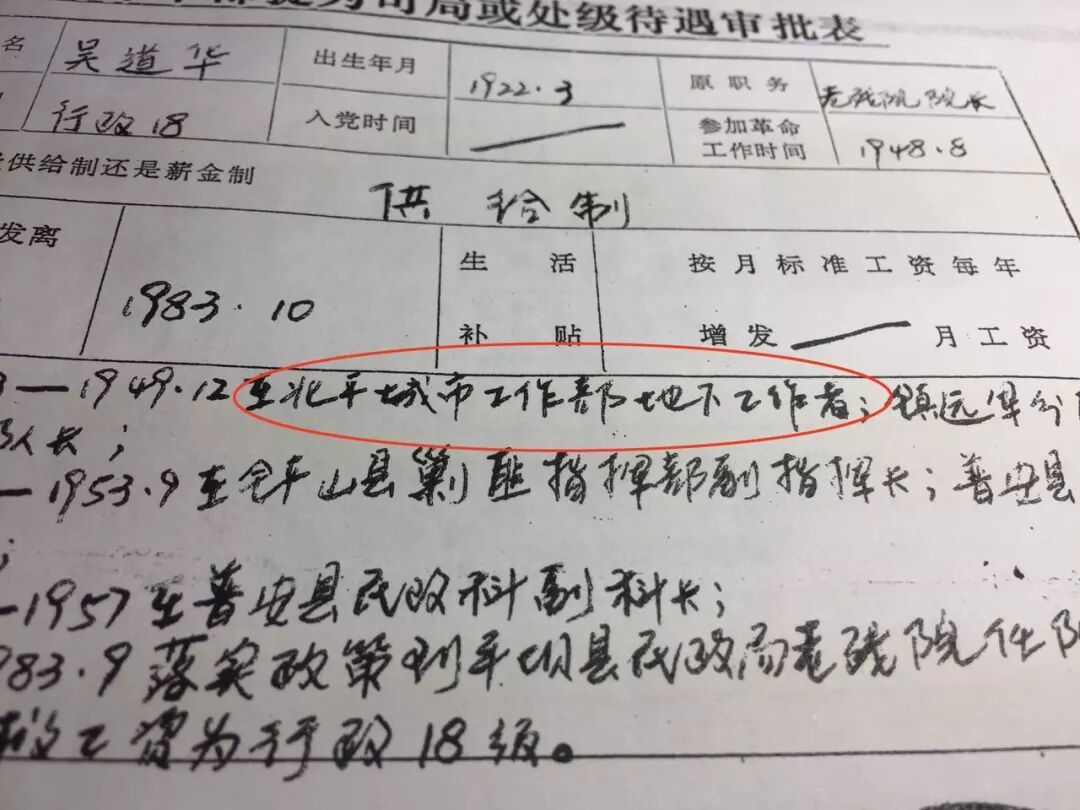 司局或处级待遇审批表
名 吴道华 出生年月 1922.3 原职务 老残院院长
行政18 入党时间 — 参加革命工作时间 1948.8
供给制还是薪金制 供给制
发离 1983.10 生活补贴 按月标准工资每年增发—月工资
—1949.12在北平城市工作部地下工作者;镇远军分
队长;
—1953.9在 山县剿匪指挥部副指挥长;普安县
;
—1957在普安县民政科副科长;
983.9落实政策到平坝县民政局老残院任
工资为行政18级。